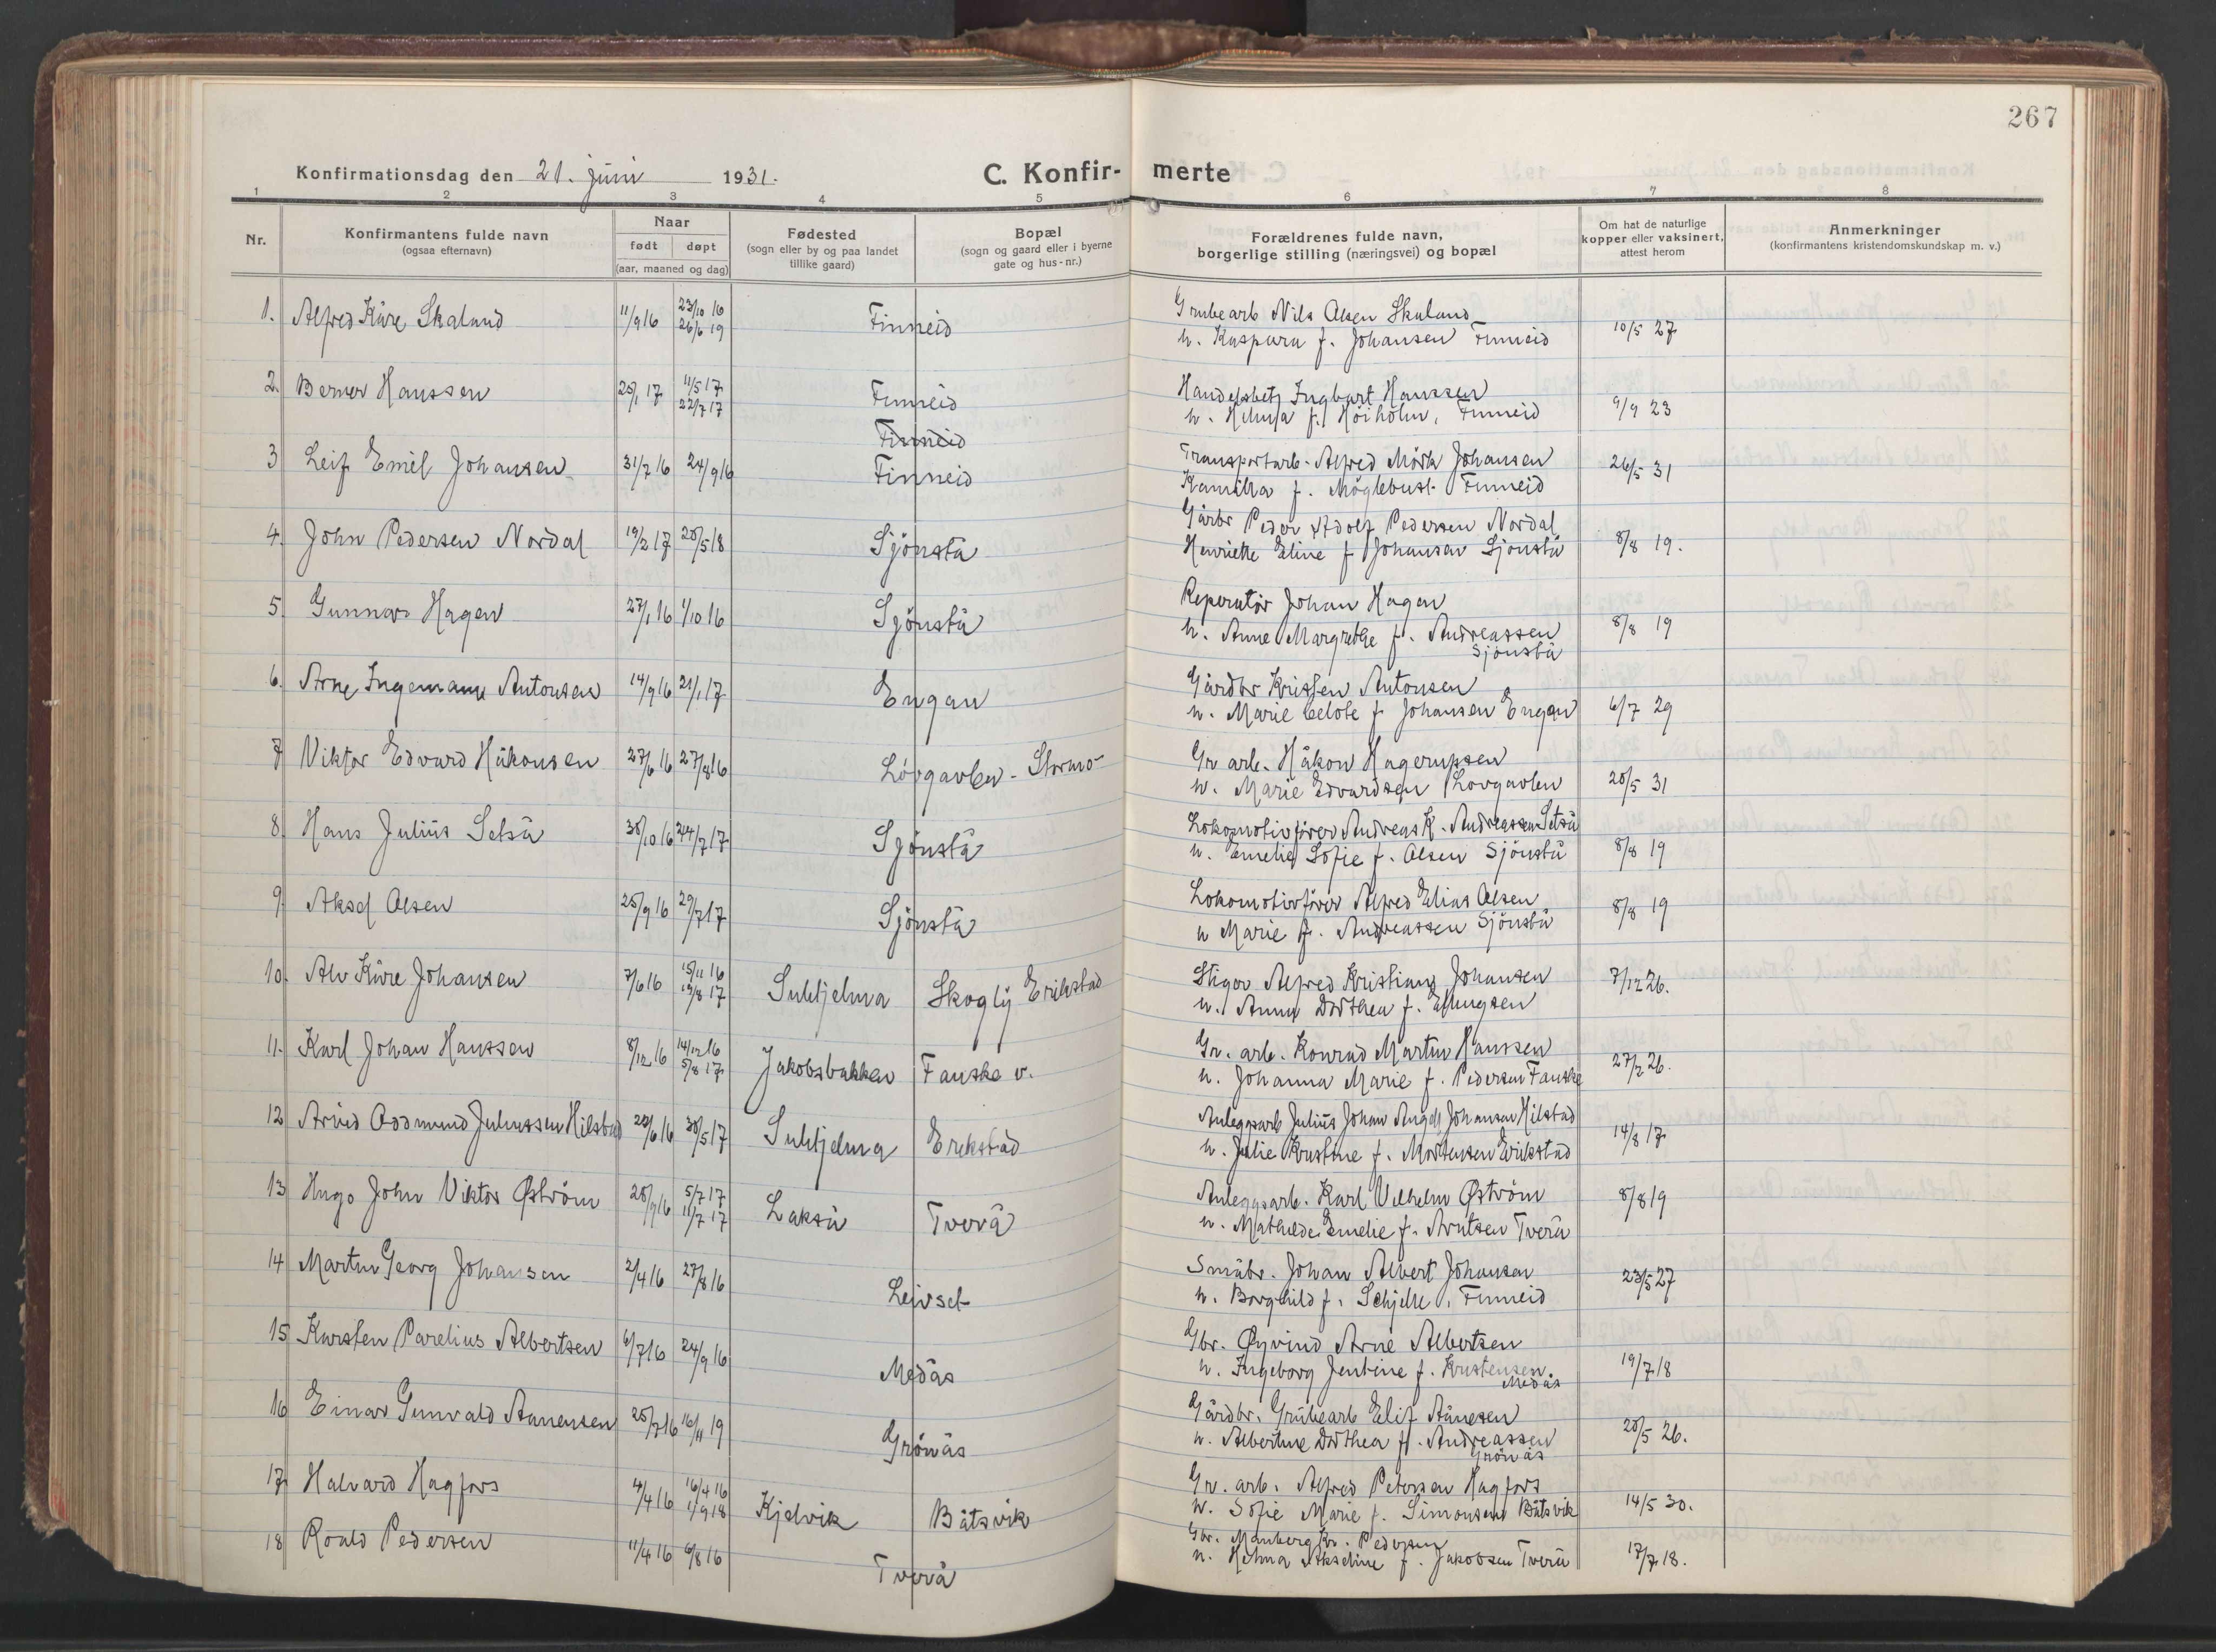 267
Konfirmationsdag den 21. juni 1931.
C. Konfir-
merte
1 2 3 4 5 6 7 8
Nr.
Konfirmantens fulde navn
(ogsaa efternavn)
Naar
født døpt
(aar, maaned og dag)
Fødested
(sogn eller by og paa landet
tillike gaard)
Bopæl
(sogn og gaard eller i byerne
gate og hus-nr.)
Forældrenes fulde navn,
borgerlige stilling (næringsvei) og bopæl
Om hat de naturlige
kopper eller vaksinert,
attest herom
Anmerkninger
(konfirmantens kristendomskundskap m. v.)
1. Alfred Kåre Skaland 11/9 16 23/10 16 26/6 19 Finneid
Grubearb Nils Olsen Skaland
h. Kaspara f. Johansen Finneid 10/5 27
2. Berner Hanssen 25/1 17 11/5 17 22/7 17 Finneid
Handelsbetj Ingbart Hanssen
h. Helma f. Höiholm, Finneid 9/9 23
Finneid
3 Leif Emil Johansen 31/7 16 24/9 16 Finneid
Transportarb. Alfred Mörk Johansen
Kamilla f. Möglebust Finneid 26/5 31
4. John Pedersen Nordal 19/2 17 25/5 18 Sjönstå
Gårbr Peder Adolf Pedersen Nordal
Henriette Eline f Johansen Sjönstå 8/8 19.
5 Gunnar Hagen 27/1 16 1/10 16 Sjönstå
Reperatör Johan Hagen
h. Anne Margrethe f. Andreassen
Sjönstå 8/8 19
6. Arne Ingemann Antonsen 14/9 16 21/1 17 Engan
Gårdbr Kristen Antonsen
h. Marie Celote f Johansen Engan 6/7 29
7 Viktor Edvard Håkonsen 27/6 16 27/8 16 Lövgavlen - Stormo
Gr arb. Håkon Hagerupsen
h. Marie Edvardsen Lövgavlen 28/5 31
8 Hans Julius Setså 30/10 16 24/7 17 Sjönstå
Lokomotivförer Andreas K. Andreassen Setså
h. Emelie Sofie f. Olsen Sjönstå 8/8 19
9 Aksel Olsen 25/9 16 29/7 17 Sjönstå
Lokomotivförer Alfred Elias Olsen
h Marie f. Andreassen Sjönstå 8/8 19
10. Alv Kåre Johansen 7/6 16 15/11 16 19/8 17 Sulitjelma Skogly Erikstad
Stiger Alfred Kristian Johansen
h. Anna Dorthea f. Ellingsen 7/12 26.
11. Karl Johan Hanssen 8/12 16 14/12 16 5/8 17 Jakobsbakken Fauske v.
Gr. arb. Konrad Martin Hanssen
h. Johanna Marie f. Pedersen Fauske 27/2 26.
12 Arvid Oddmund Juliussen Hilstad 28/6 16 30/5 17 Sulitjelma Erikstad
Anleggsarb Julius Johan Angel Johansen Hilstad
h. Julie Kristine f. Mortensen Erikstad 14/8 17
13 Hugo John Viktor Øström 28/9 16 5/7 17 11/7 17 Lakså Tverå
Anleggsarb. Karl Vilhelm Øström
h. Mathilde Emelie f. Arntsen Tverå 8/8 19
14 Martin Georg Johansen 2/4 16 27/8 16 Leivset
Småbr. Johan Albert Johansen
h. Borghild f. Schjelle, Finneid 23/5 27
15 Karsten Parelius Albertsen 6/7 16 24/9 16 Medås
Gbr. Øyvind Arne Albertsen
h. Ingeborg Jentine f. Kristensen
Medås 19/7 18
16 Einar Gunvald Aanensen 25/7 16 16/11 19 Grönås
Gårdbr. Grubearb Elif Aanesen
h. Albertine Dorthea f. Andreassen
Grönås 28/5 26.
17 Halvard Hagfors 4/4 16 16/4 16 1/9 18 Kjelvik Båtsvik
Gr. arb. Alfred Petersen Hagfors
h. Sofie Marie f. Simonsen Båtsvik 14/5 30.
18 Roald Pedersen 11/4 16 6/8 16 Tverå
Gbr. Manberg Kr. Pedersen
h. Helma Akseline f. Jakobsen Tverå 17/7 18.